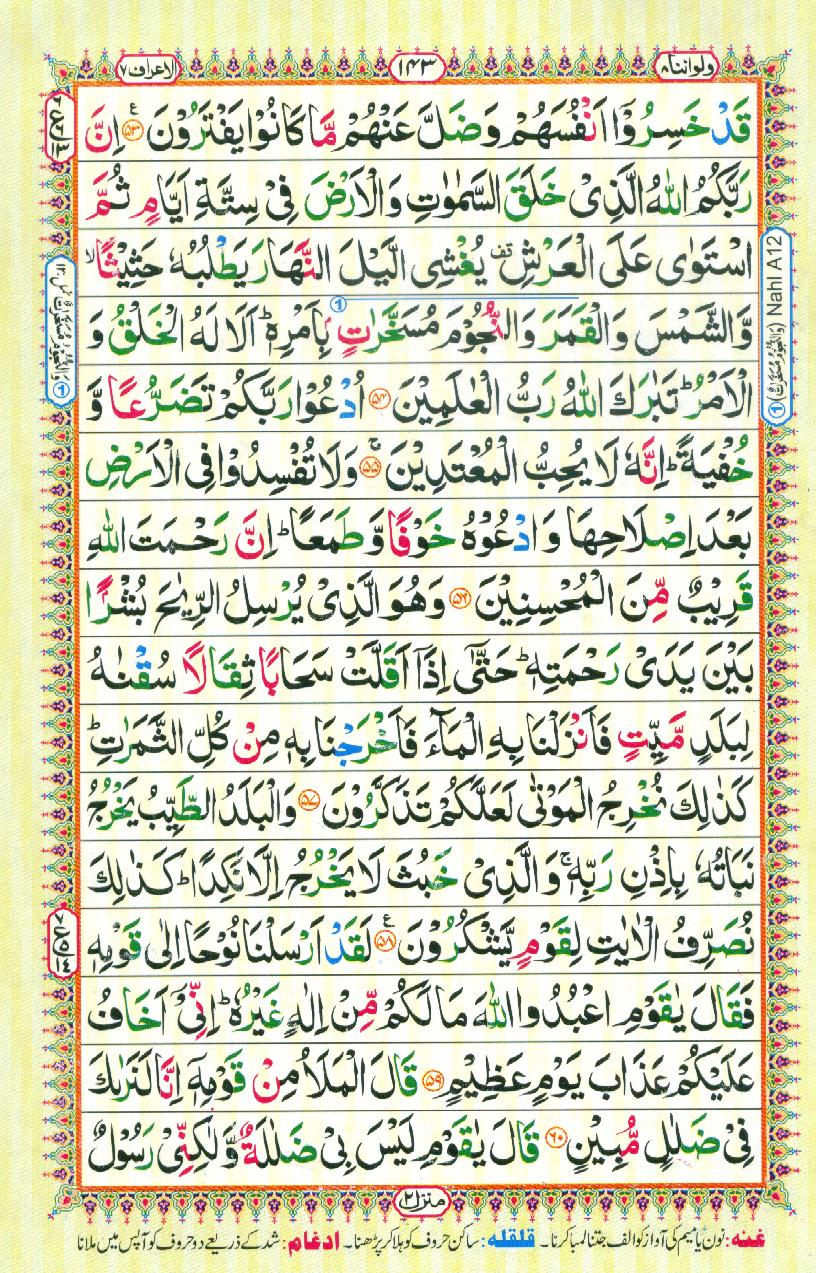 ولواننا ۸
۱۴۳
الاعراف ۷
قَدْ خَسِرُوْۤا اَنْفُسَهُمْ وَضَلَّ عَنْهُمْ مَّا كَانُوْا يَفْتَرُوْنَ ۵۳ ع اِنَّ
رَبَّكُمُ اللّٰهُ الَّذِىْ خَلَقَ السَّمٰوٰتِ وَالْاَرْضَ فِىْ سِتَّةِ اَيَّامٍ ثُمَّ
اسْتَوٰى عَلَى الْعَرْشِ قف يُغْشِى الَّيْلَ النَّهَارَ يَطْلُبُهٗ حَثِيْثًا ۙ
وَّالشَّمْسَ وَالْقَمَرَ وَالنُّجُوْمَ مُسَخَّرٰتٍۭ بِاَمْرِهٖ ؕ اَلَا لَهُ الْخَلْقُ وَ
الْاَمْرُ ؕ تَبٰرَكَ اللّٰهُ رَبُّ الْعٰلَمِيْنَ ۵۴ اُدْعُوْا رَبَّكُمْ تَضَرُّعًا وَّ
خُفْيَةً ؕ اِنَّهٗ لَا يُحِبُّ الْمُعْتَدِيْنَ ۚ ۵۵ وَلَا تُفْسِدُوْا فِى الْاَرْضِ
بَعْدَ اِصْلَاحِهَا وَادْعُوْهُ خَوْفًا وَّطَمَعًا ؕ اِنَّ رَحْمَتَ اللّٰهِ
قَرِيْبٌ مِّنَ الْمُحْسِنِيْنَ ۵۶ وَهُوَ الَّذِىْ يُرْسِلُ الرِّيٰحَ بُشْرًۢا
بَيْنَ يَدَىْ رَحْمَتِهٖ ؕ حَتّٰۤى اِذَاۤ اَقَلَّتْ سَحَابًا ثِقَالًا سُقْنٰهُ
لِبَلَدٍ مَّيِّتٍ فَاَنْزَلْنَا بِهِ الْمَآءَ فَاَخْرَجْنَا بِهٖ مِنْ كُلِّ الثَّمَرٰتِ ؕ
كَذٰلِكَ نُخْرِجُ الْمَوْتٰى لَعَلَّكُمْ تَذَكَّرُوْنَ ۵۷ وَالْبَلَدُ الطَّيِّبُ يَخْرُجُ
نَبَاتُهٗ بِاِذْنِ رَبِّهٖ ۚ وَالَّذِىْ خَبُثَ لَا يَخْرُجُ اِلَّا نَكِدًا ؕ كَذٰلِكَ
نُصَرِّفُ الْاٰيٰتِ لِقَوْمٍ يَّشْكُرُوْنَ ۵۸ ع لَقَدْ اَرْسَلْنَا نُوْحًا اِلٰى قَوْمِهٖ
فَقَالَ يٰقَوْمِ اعْبُدُوا اللّٰهَ مَا لَكُمْ مِّنْ اِلٰهٍ غَيْرُهٗ ؕ اِنِّىْۤ اَخَافُ
عَلَيْكُمْ عَذَابَ يَوْمٍ عَظِيْمٍ ۵۹ قَالَ الْمَلَاُ مِنْ قَوْمِهٖۤ اِنَّا لَنَرٰىكَ
فِىْ ضَلٰلٍ مُّبِيْنٍ ۶۰ قَالَ يٰقَوْمِ لَيْسَ بِىْ ضَلٰلَةٌ وَّلٰكِنِّىْ رَسُوْلٌ
① Nahl A12
منزل ۲
غنہ: نون یا میم کی آواز کو الف جتنا لمبا کرنا۔ قلقلہ: ساکن حروف کو ہلا کر پڑھنا۔ ادغام: شد کے ذریعے دو حروف کو آپس میں ملانا